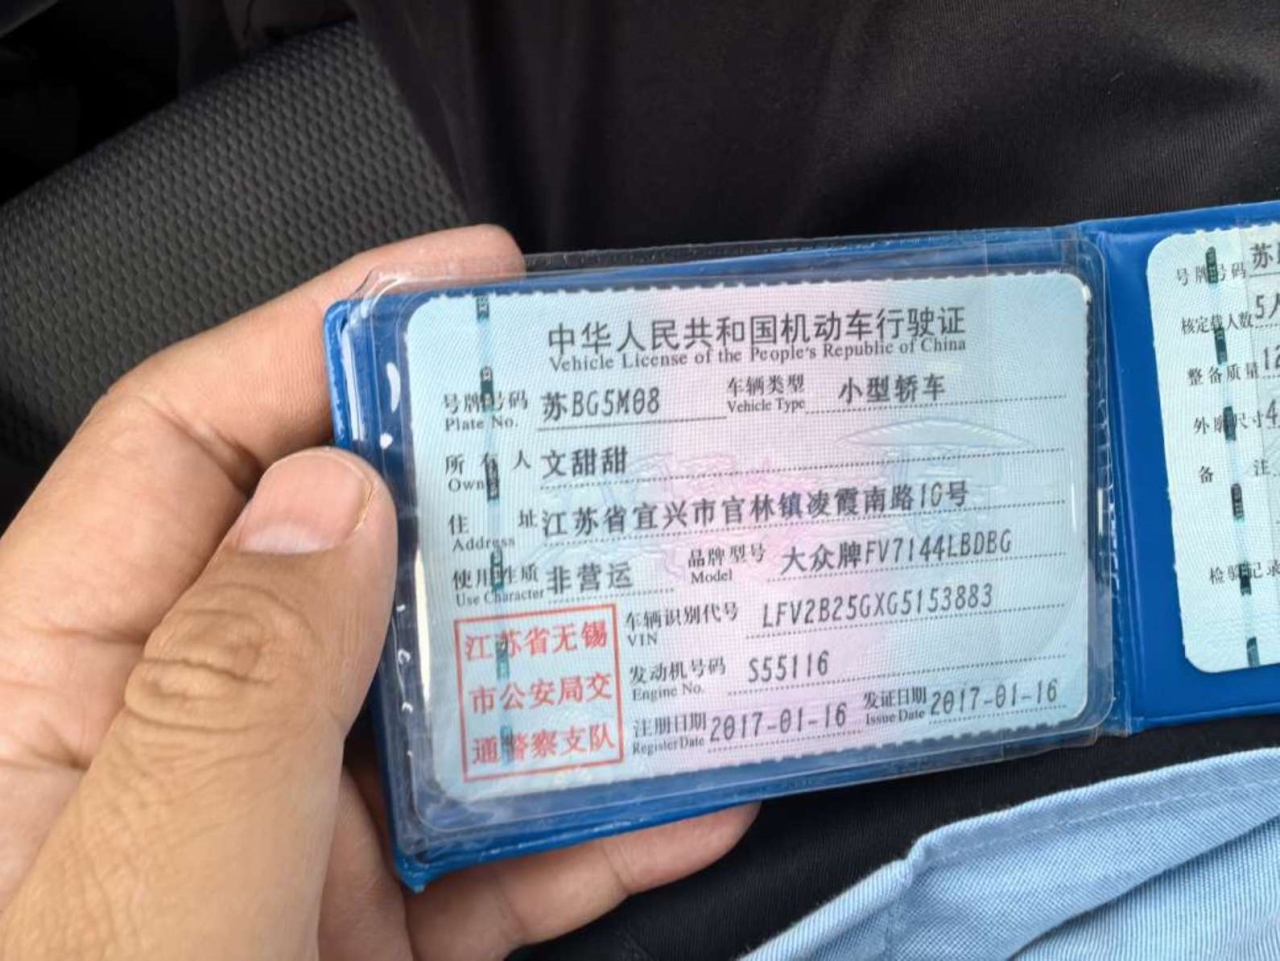 中华人民共和国机动车行驶证
Vehicle License of the People's Republic of China
号牌号码 苏BG5M08 车辆类型 小型轿车
Plate No. Vehicle Type
所有人 文甜甜
Owner
住址 江苏省宜兴市官林镇凌霞南路10号
Address
使用性质 非营运 品牌型号 大众牌FV7144LBDBG
Use Character Model
江苏省无锡
市公安局交
通警察支队
车辆识别代号 LFV2B25GXG5153883
VIN
发动机号码 S55116
Engine No.
注册日期 2017-01-16 发证日期 2017-01-16
Register Date Issue Date
号牌号码 苏
核定载人数 5人
整备质量 12
外廓尺寸 4
备注
检验记录